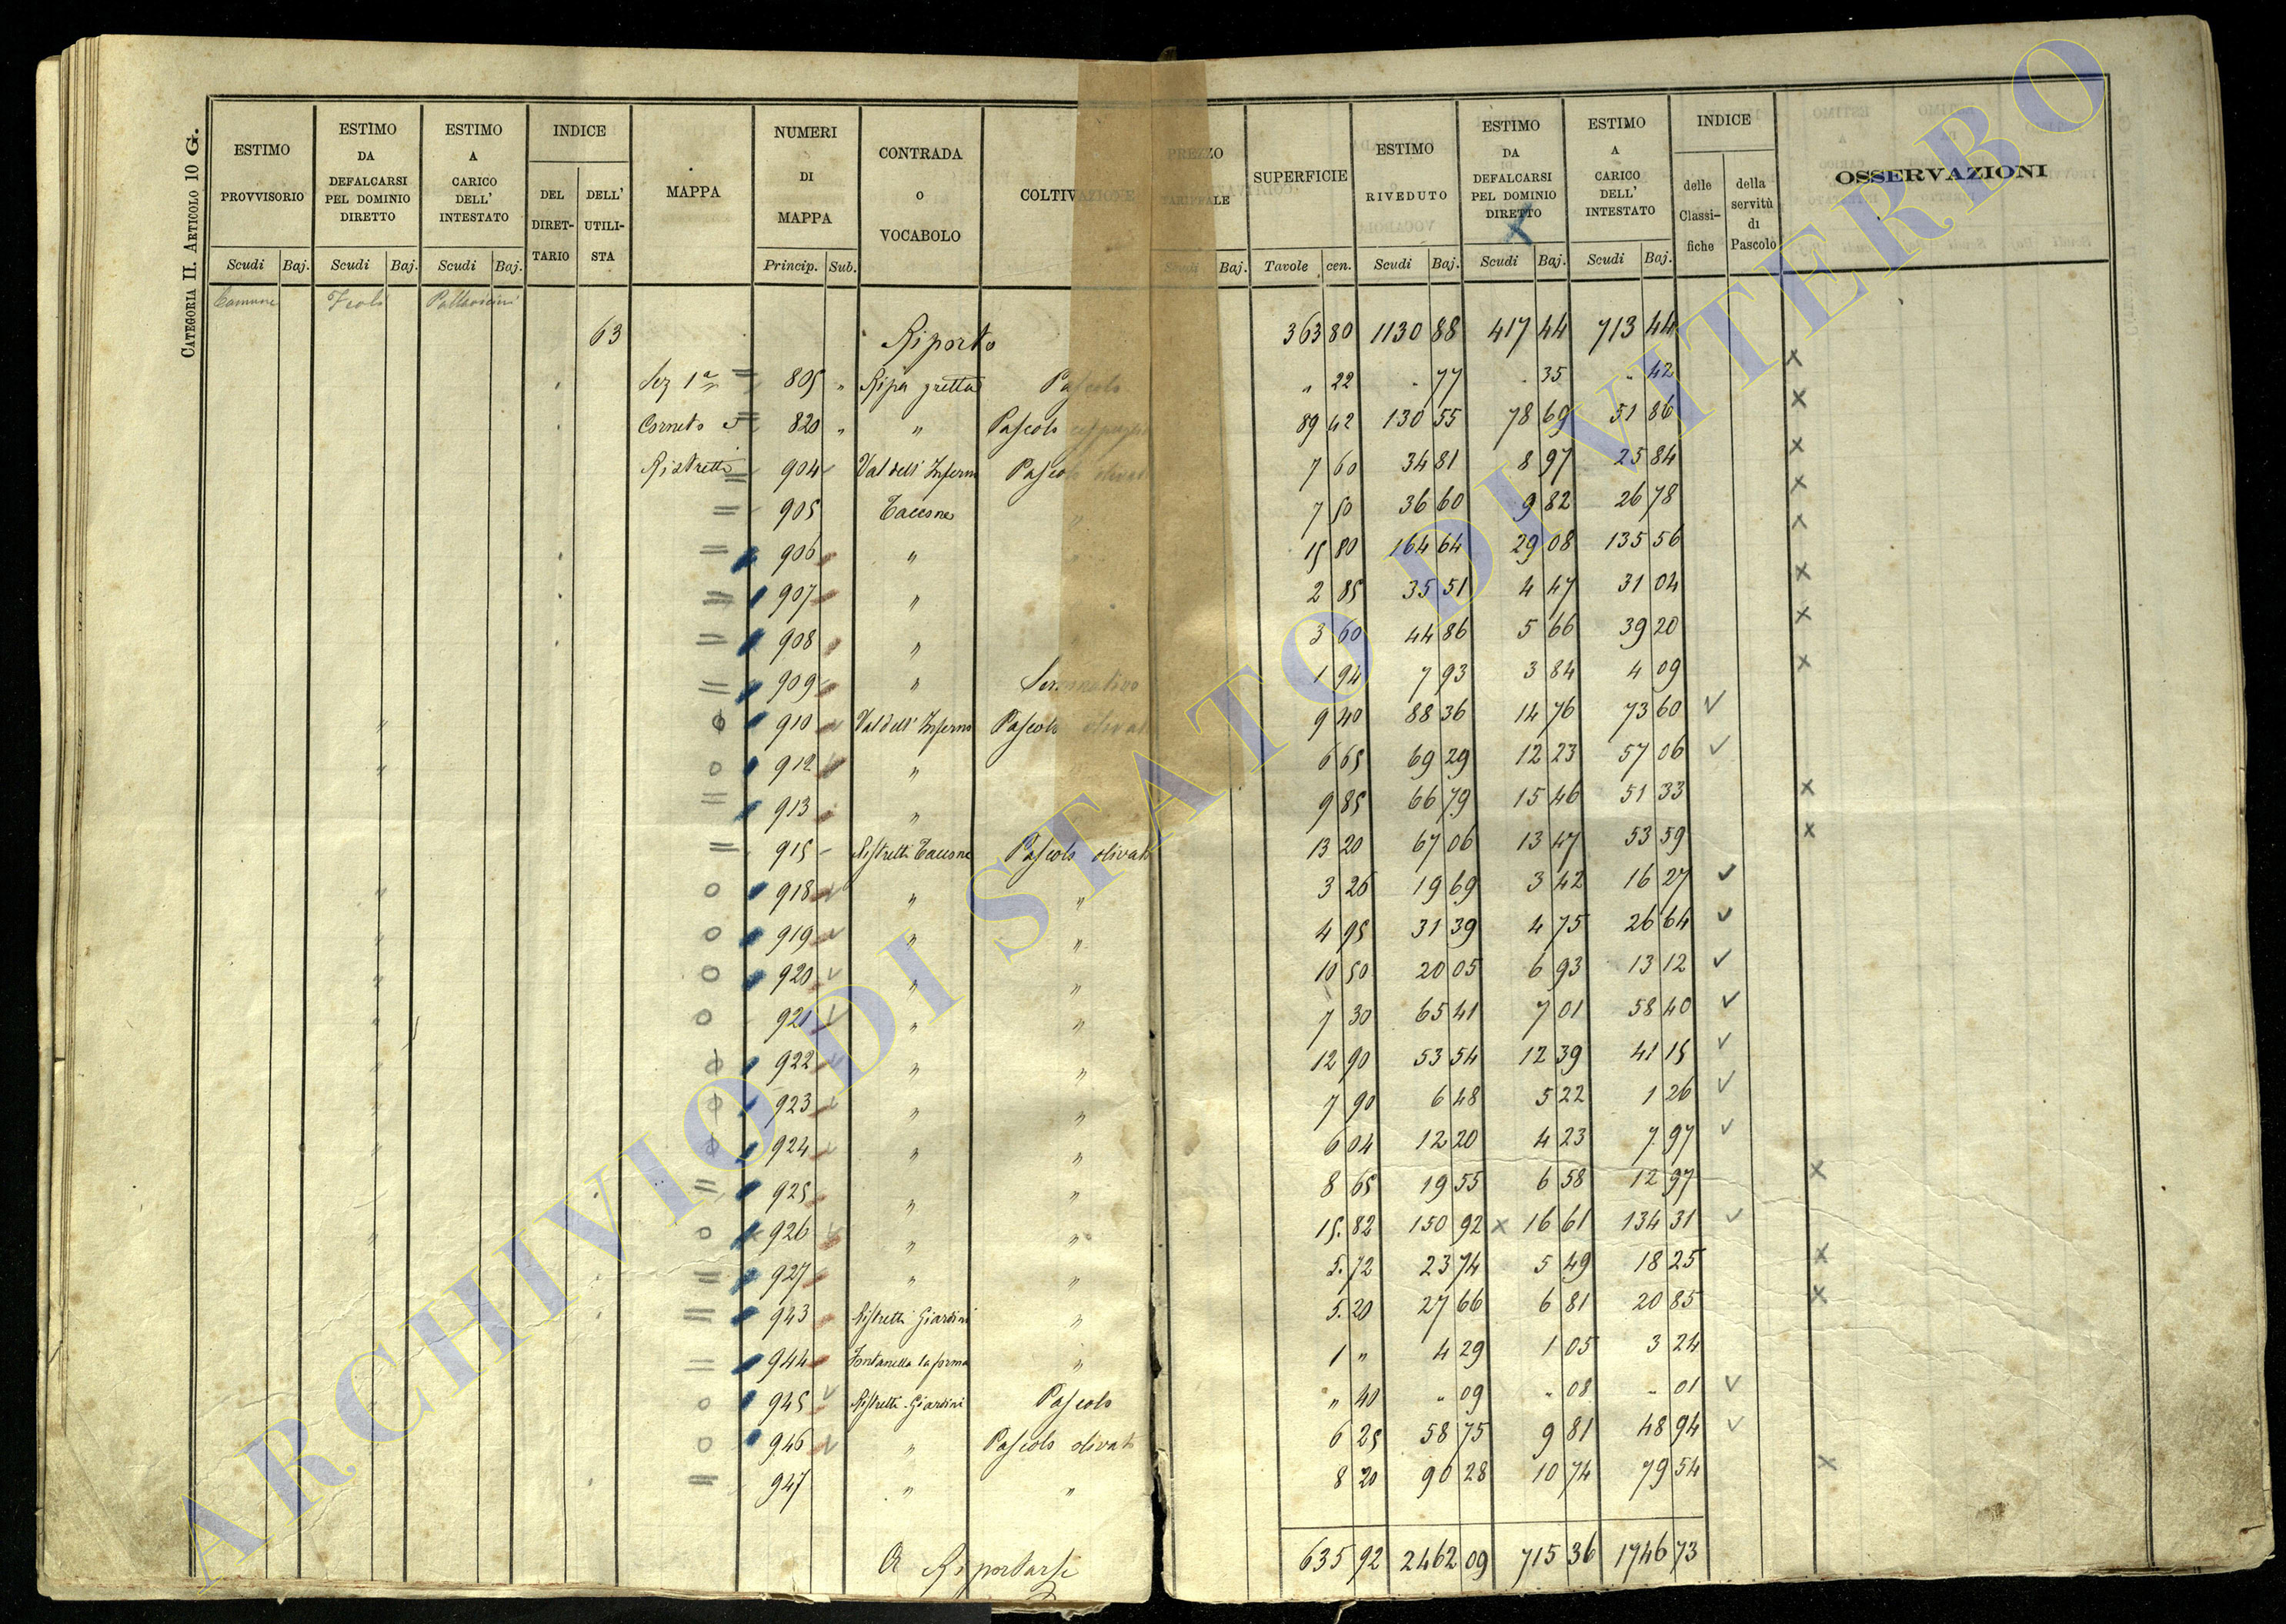 CATEGORIA II. ARTICOLO 10 G.
ESTIMO PROVVISORIO Scudi Baj.
ESTIMO DA DEFALCARSI PEL DOMINIO DIRETTO Scudi Baj.
ESTIMO A CARICO DELL' INTESTATO Scudi Baj.
INDICE DEL DIRETTARIO DELL' UTILISTA
MAPPA
NUMERI DI MAPPA Princip. Sub.
CONTRADA o VOCABOLO
COLTIVAZIONE
PREZZO TARIFFALE Scudi Baj.
SUPERFICIE Tavole cen.
ESTIMO RIVEDUTO Scudi Baj.
ESTIMO DA DEFALCARSI PEL DOMINIO DIRETTO Scudi Baj.
ESTIMO A CARICO DELL' INTESTATO Scudi Baj.
INDICE delle Classifiche della servitù di Pascolo
OSSERVAZIONI
Comune Pallavicini
63 Riporto 363 80 1130 88 417 44 713 44
Sez 1a 805 " Ripa gretta Pascolo " 22 " 77 " 35 " 42 x
Corneto 820 " " Pascolo 89 42 130 55 78 69 51 86 x
Ristretti 904 Val dell' Inferno Pascolo olivato 7 60 34 81 8 97 25 84 x
905 Taccone " 7 50 36 60 9 82 26 78 x
906 " 15 80 164 64 29 08 135 56 x
907 " 2 85 35 51 4 47 31 04 x
908 " 3 60 44 86 5 66 39 20 x
909 " Seminativo 1 94 7 93 3 84 4 09 x
910 Val dell' Inferno Pascolo olivato 9 40 88 36 14 76 73 60 v
912 " 6 65 69 29 12 23 57 06 v
913 " 9 85 66 79 15 46 51 33 x
915 Ristretti Taccone Pascolo olivato 13 20 67 06 13 47 53 59 x
918 " " 3 26 19 69 3 42 16 27 v
919 " " 4 95 31 39 4 75 26 64 v
920 " " 10 50 20 05 6 93 13 12 v
921 " " 7 30 65 41 7 01 58 40 v
922 " " 12 90 53 54 12 39 41 15 v
923 " " 7 90 6 48 5 22 1 26 v
924 " " 6 04 12 20 4 23 7 97 v
925 " " 8 65 19 55 6 58 12 97 x
926 " " 15. 82 150 92 x 16 61 134 31 v
927 " " 5. 72 23 74 5 49 18 25 x
943 Ristretti Giardini " 5. 20 27 66 6 81 20 85 x
944 Fontanella la forma " 1 " 4 29 1 05 3 24
945 Ristretti Giardini Pascolo " 40 " 09 " 08 " 01 v
946 " Pascolo olivato 6 25 58 75 9 81 48 94 v
947 " " 8 20 90 28 10 74 79 54 x
A Riportarsi 635 92 2462 09 715 36 1746 73
ARCHIVIO DI STATO DI VITERBO